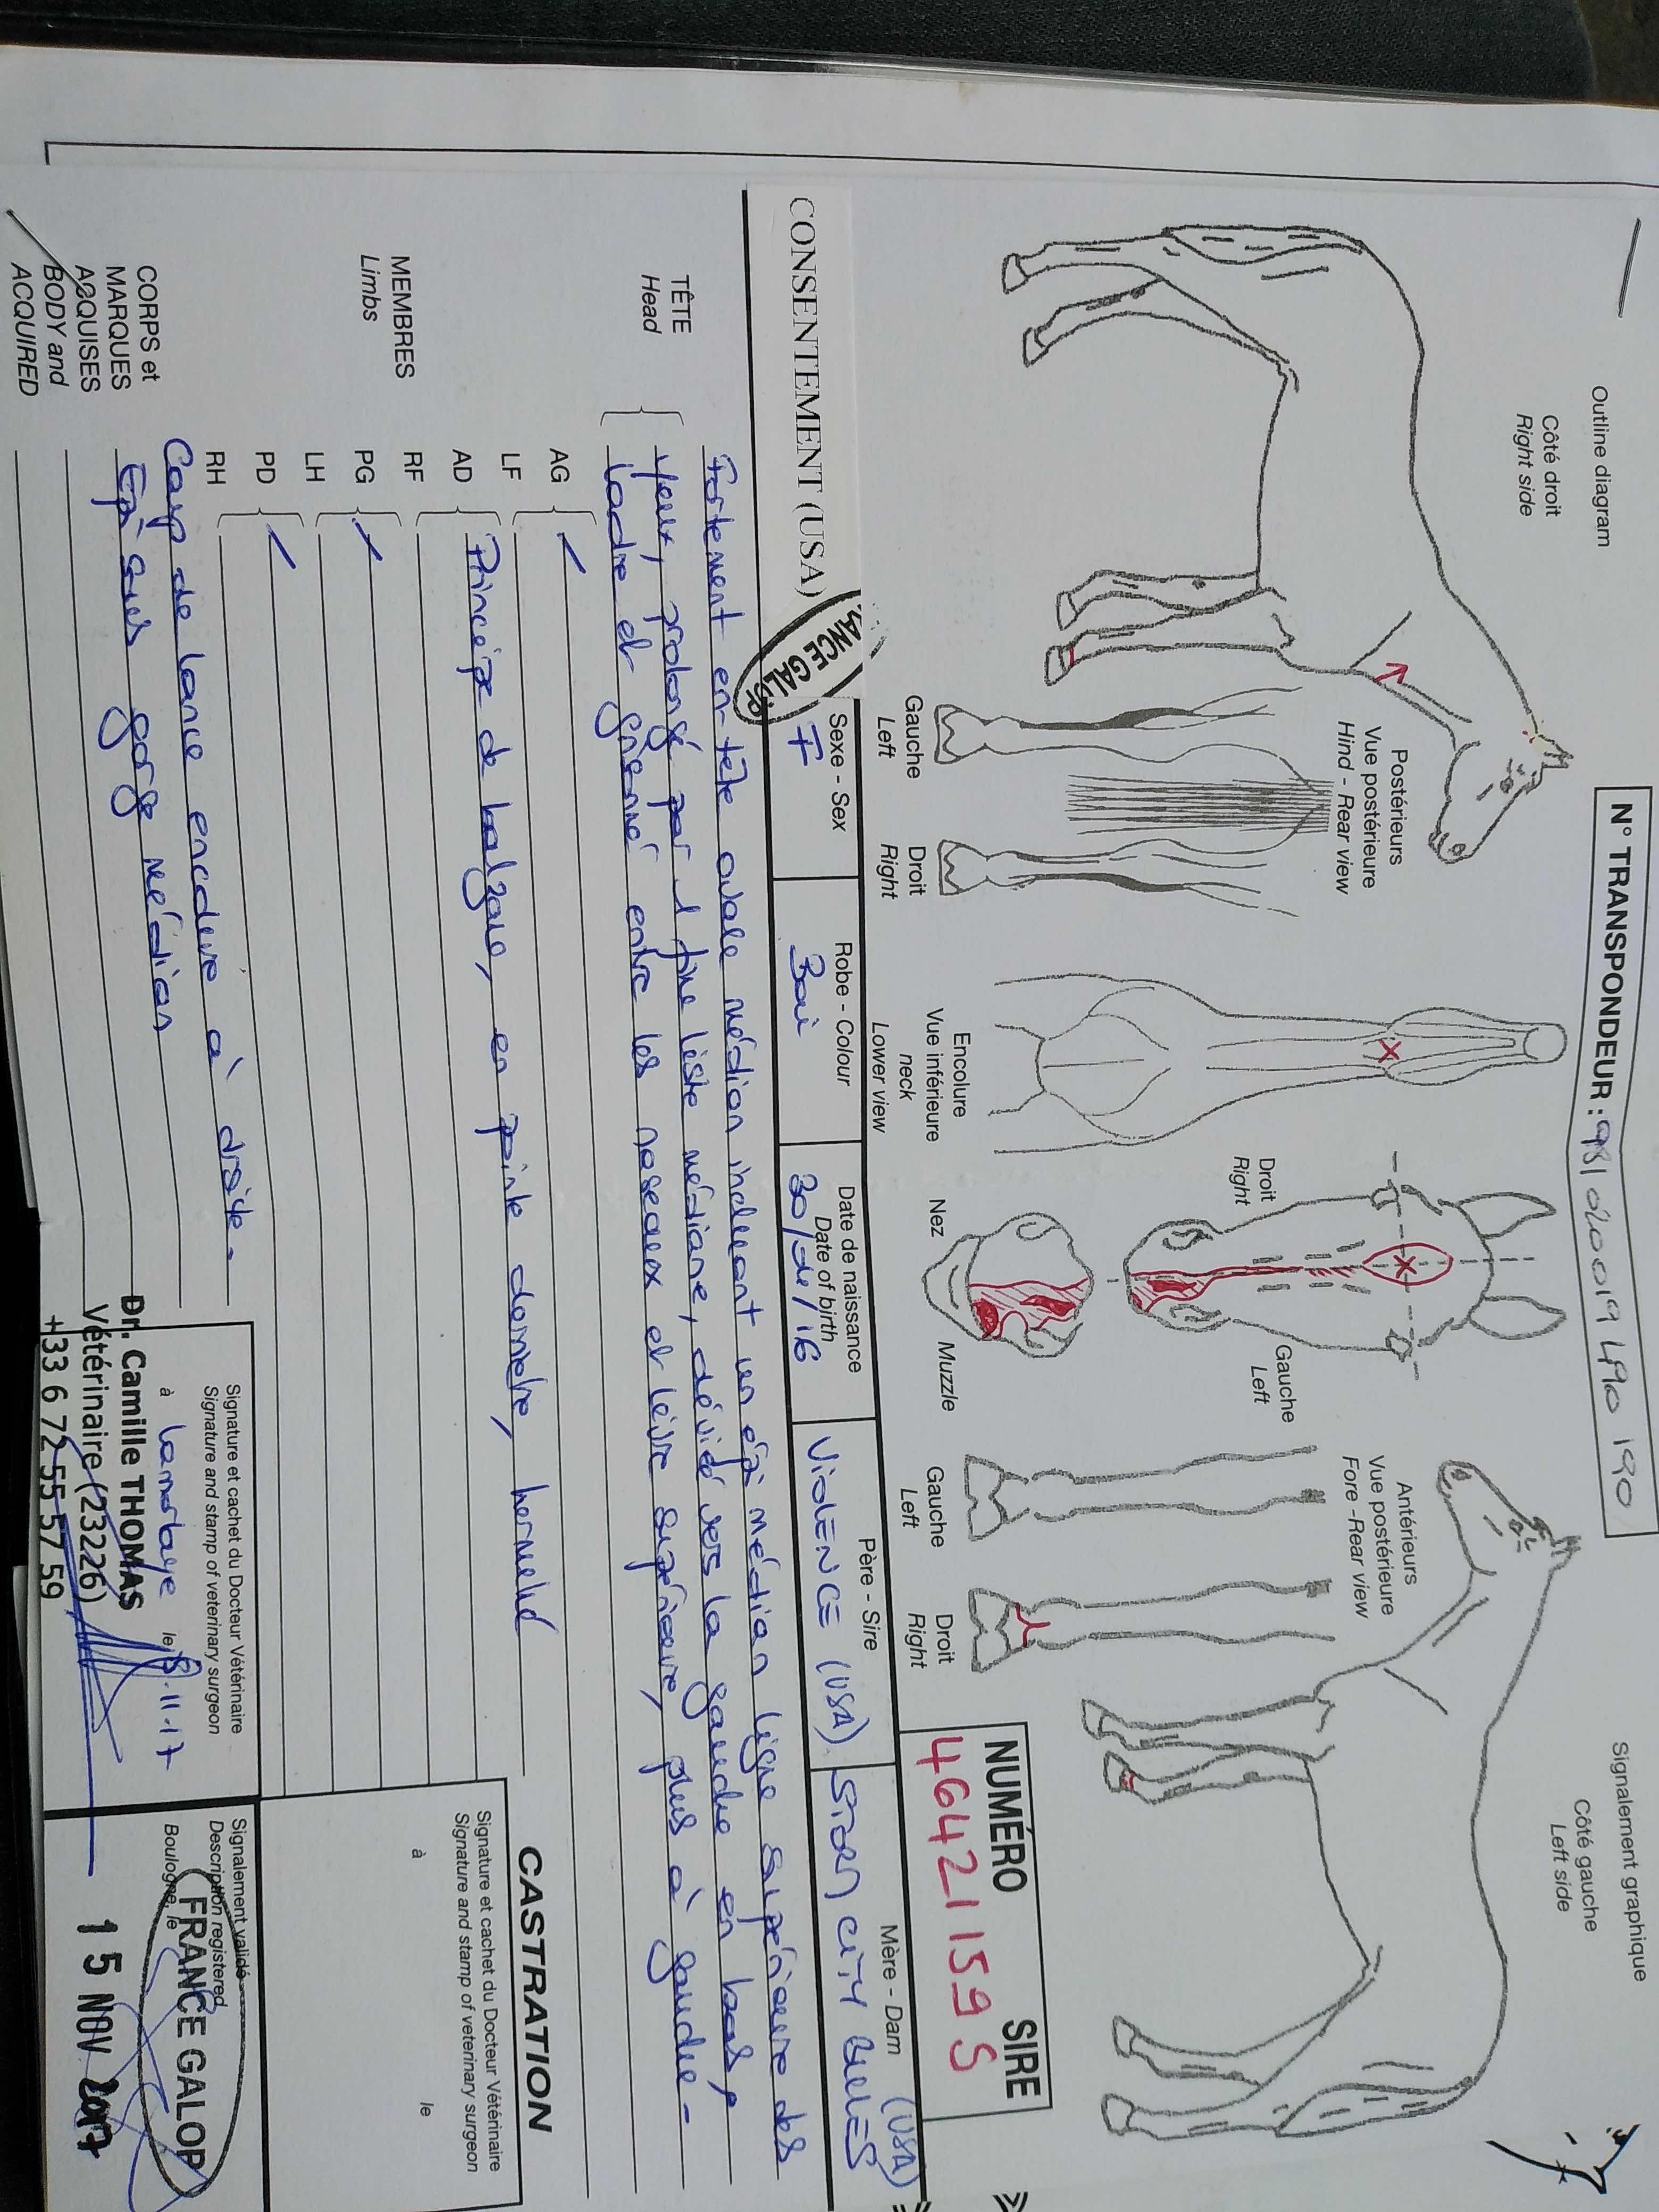 N° TRANSPONDEUR : 981020019490190
Outline diagram
Signalement graphique
Côté droit
Right side
Côté gauche
Left side
Postérieurs
Vue postérieure
Hind - Rear view
Gauche
Left
Droit
Right
Encolure
Vue inférieure
neck
Lower view
Droit
Right
Gauche
Left
Nez
Muzzle
Antérieurs
Vue postérieure
Fore - Rear view
Gauche
Left
Droit
Right
NUMÉRO SIRE
46421159 S
CONSENTEMENT (USA)
FRANCE GALOP
Sexe - Sex
F
Robe - Colour
Bai
Date de naissance
Date of birth
30/04/16
Père - Sire
VIOLENCE (USA)
Mère - Dam
STORM CITY BLUES (USA)
TÊTE
Head
Fortement en-tête ovale médian incluant un épi médian ligne supérieure des
yeux, prolongé par 1 fine liste médiane, déviée vers la gauche en bas,
ladre et entre les naseaux et lèvre supérieure, plus à gauche -
MEMBRES
Limbs
AG
LF
AD
RF
Principe de balzane, en pointe, herminé
PG
LH
PD
RH
CORPS et
MARQUES
ACQUISES
BODY and
ACQUIRED
Coup de lance encolure à droite.
Epi sous gorge médian
CASTRATION
Signature et cachet du Docteur Vétérinaire
Signature and stamp of veterinary surgeon
à le
Signature et cachet du Docteur Vétérinaire
Signature and stamp of veterinary surgeon
à Lamorlaye le 8.11.17
Dr. Camille THOMAS
Vétérinaire (23226)
+33 6 72 55 57 59
Signalement validé
Description registered
Boulogne, le
FRANCE GALOP
15 NOV 2017